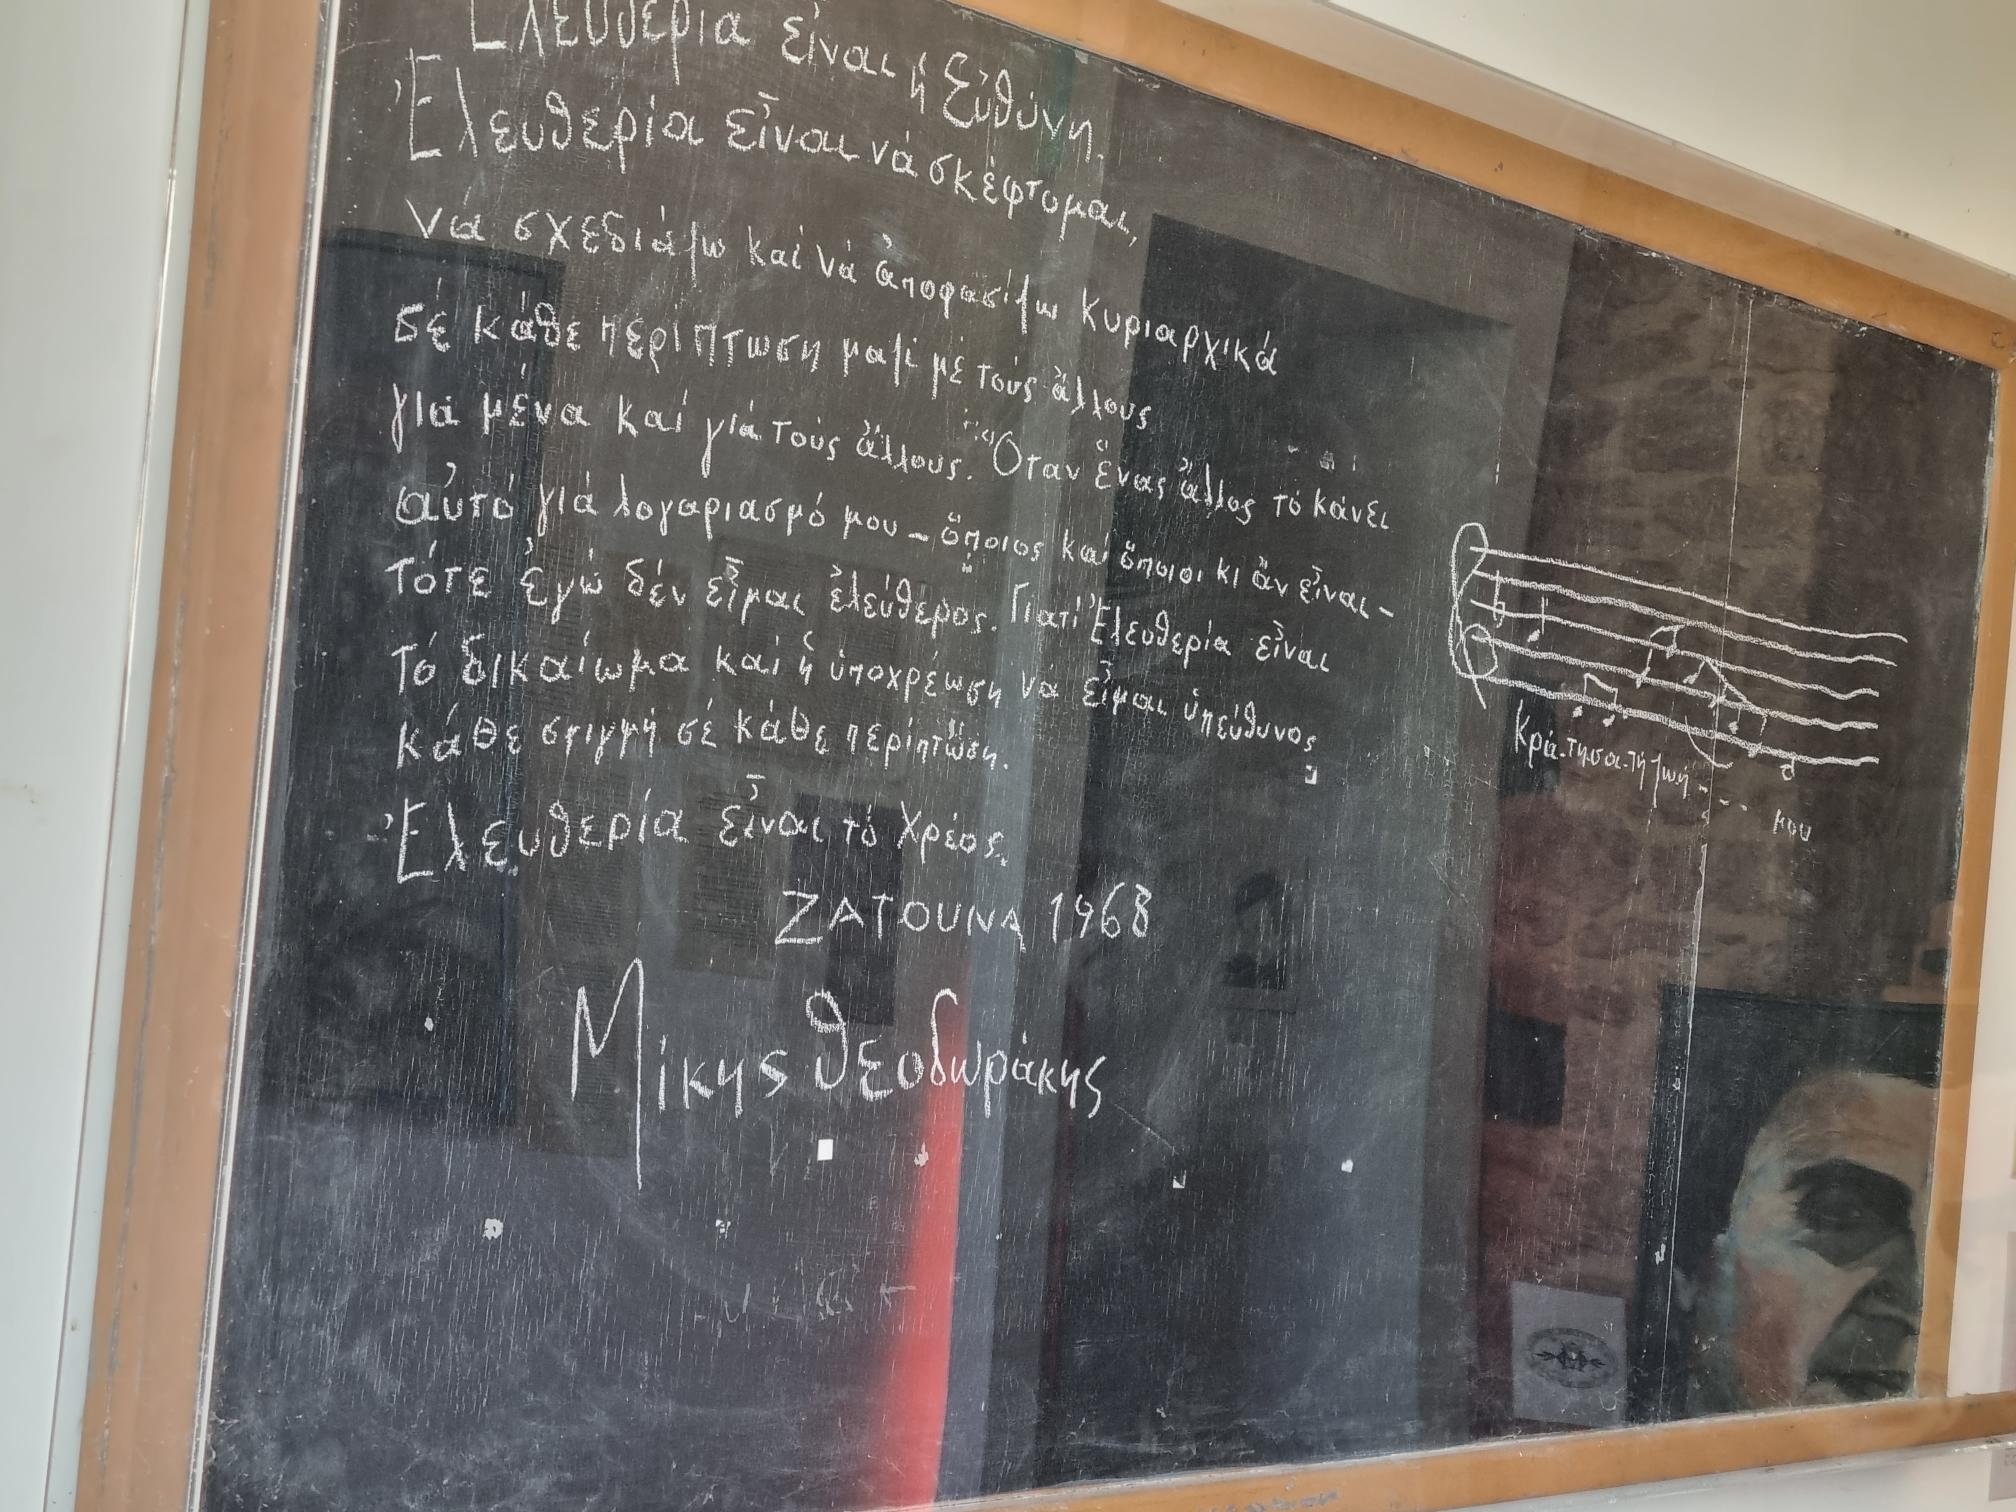 Ἐλευθερία εἶναι ἡ Εὐθύνη.
Ἐλευθερία εἶναι νά σκέφτομαι,
νά σχεδιάζω καί νά ἀποφασίζω κυριαρχικά
σέ κάθε περίπτωση μαζί μέ τούς ἄλλους
γιά μένα καί γιά τούς ἄλλους. Ὅταν ἕνας ἄλλος τό κάνει
αὐτό γιά λογαριασμό μου – ὅποιος και ὅποιοι κι ἄν εἶναι –
τότε ἐγώ δέν εἶμαι ἐλεύθερος. Γιατί Ἐλευθερία εἶναι
τό δικαίωμα καί ἡ ὑποχρέωση νά εἶμαι ὑπεύθυνος
κάθε στιγμή σέ κάθε περίπτωση.
Ἐλευθερία εἶναι τό Χρέος.
ΖΑΤΟΥΝΑ 1968
Μίκης Θεοδωράκης
Κρά-τησα-τή ζωή....
μου